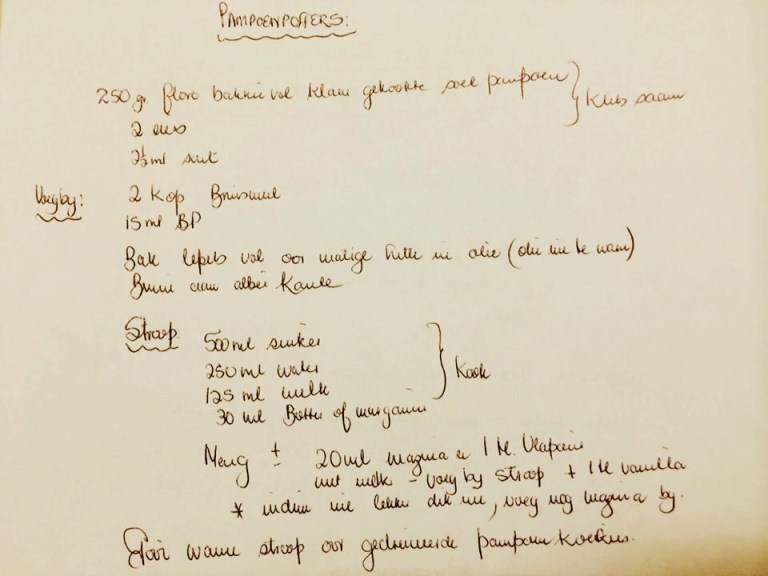 PAMPOENPOFFERS:
250 gr. flora bakkie vol klaar gekookte soet pampoen } Klits saam
2 eiers
2½ ml sout
Voeg by: 2 kop Bruismeel
15 ml BP
Bak lepels vol oor matige hitte in olie (olie nie te warm)
Bruin aan albei kante
Stroop
500 ml suiker
250 ml water
125 ml melk
30 ml Botter of margarine
} Kook
Meng ± 20 ml maizena en 1 tl. Vlapoeier
met melk - voeg by stroop + 1 tl vanilla
* indien nie lekker dik nie, voeg nog maizena by.
warm stroop oor gedreineerde pampoen koekies.